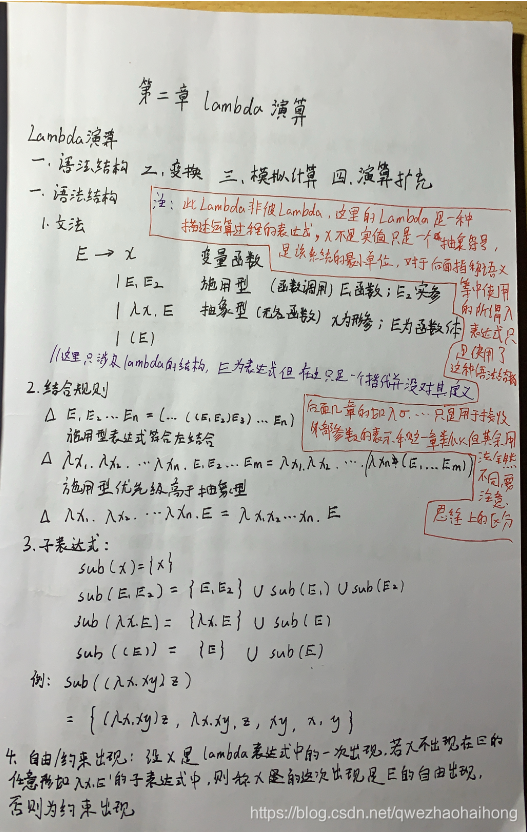 第二章 lambda 演算
Lambda演算
一. 语法结构 二. 变换 三. 模拟计算 四. 演算扩充
一. 语法结构
注: 此Lambda非彼Lambda, 这里的Lambda是一种
描述运算过程的表达式, x不是实值只是一个抽象符号,
是该系统的最小单位, 对于后面指称语义
等中使用
的所谓入
表达式只
是使用了
这种语法结构
1. 文法
E → x 变量函数
| E₁E₂ 施用型 (函数调用) E₁函数; E₂实参
| λx.E 抽象型 (无名函数) x为形参; E为函数体
| (E)
//这里只涉及lambda的结构, E为表达式但在此只是一个指代并没对其定义
2. 结合规则
Δ E₁E₂…En = (…((E₁E₂)E₃)…En)
施用型表达式符合左结合
Δ λx₁.λx₂.…λxn.E₁E₂…Em = λx₁.λx₂.…(λxn.(E₁…Em)
施用型优先级高于抽象型
Δ λx₁.λx₂.…λxn.E = λx₁x₂…xn.E
后面几章的如λσ.…只是用于接收
外部参数的表示, 和这一章类似但其采用
法全然
不同, 要
注意
思维上的区分
3. 子表达式:
sub(x)={x}
sub(E₁E₂) = {E₁E₂} ∪ sub(E₁) ∪ sub(E₂)
sub(λx.E) = {λx.E} ∪ sub(E)
sub((E)) = {E} ∪ sub(E)
例: sub((λx.xy)z)
= {(λx.xy)z, λx.xy, z, xy, x, y}
4. 自由/约束出现: 设x是lambda表达式中的一次出现, 若x不出现在E的
任意形如λx.E'的子表达式中, 则称x是的这次出现是E的自由出现,
否则为约束出现
https://blog.csdn.net/qwezhaohaihong